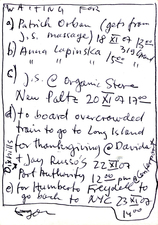 WAITING FOR
a) Patrick Orban (gets from
J.S. massage) 18 XI 07 1200
b) Anna Łapinska 319 Grand
" " 1500 "
c) J.S. @ Organic Store
New Paltz 20 XI 07 1700
d) to board overcrowded
train to go to Long Island
for thanksgiving @ Davida's
+ Jay Russo's 22 XI 07
Port Authority 1200 pm
e) for Humberto Freydell to
go back to NYC 23 XI 07
1400